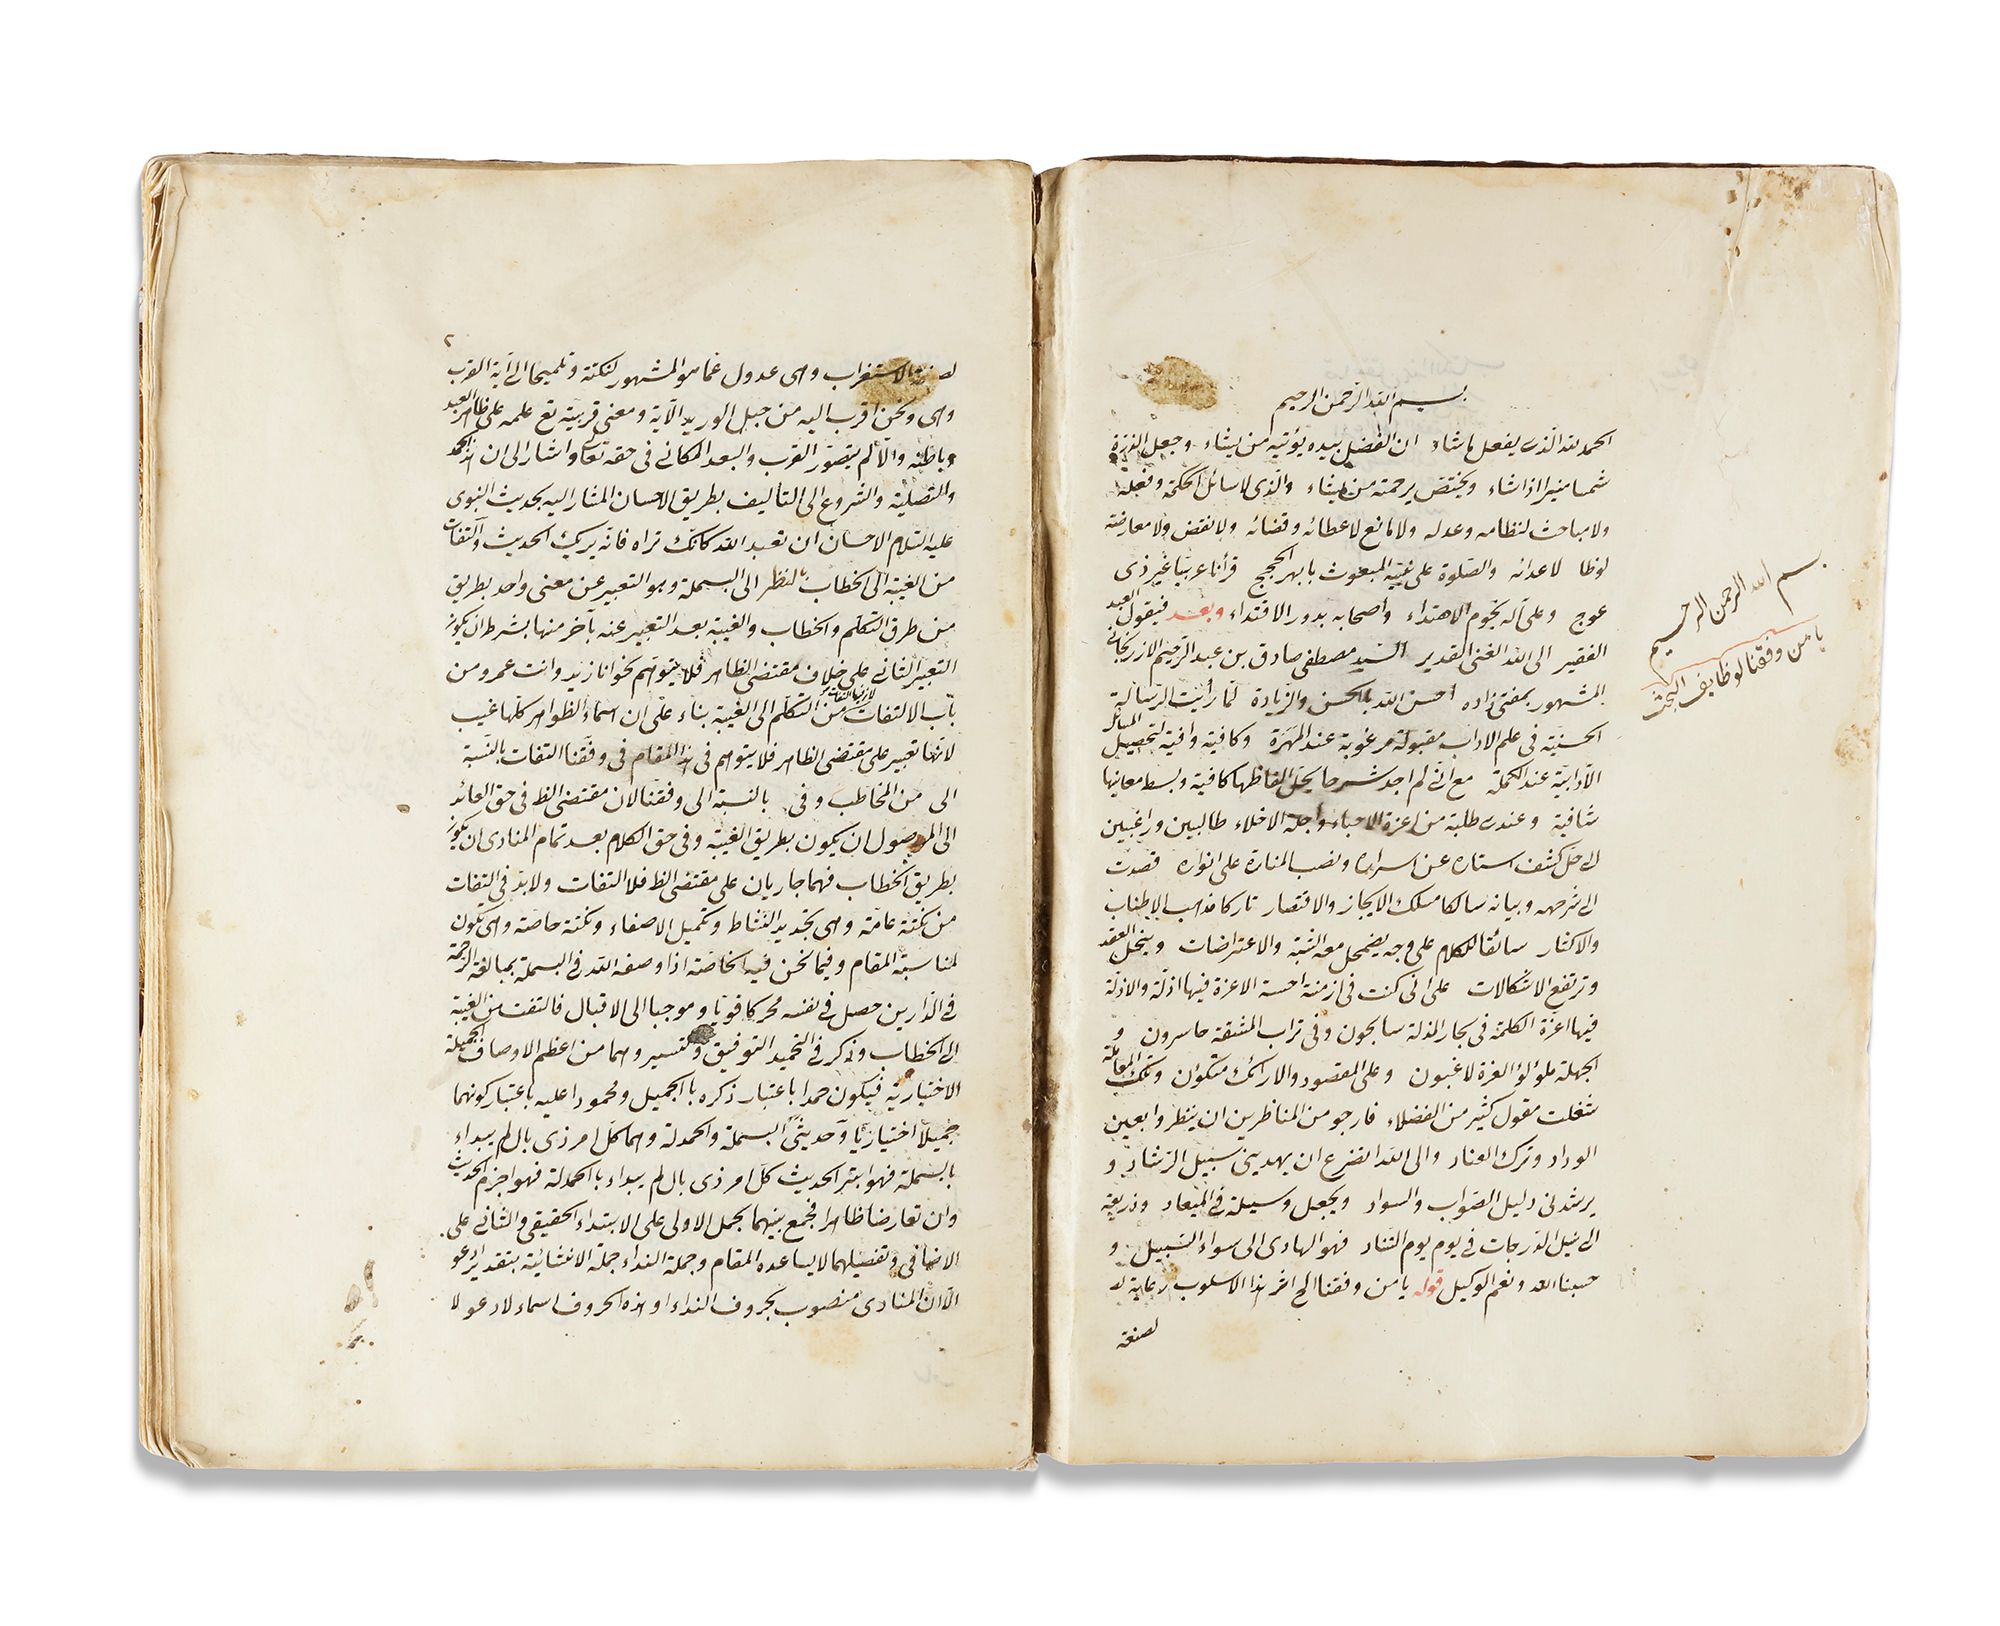 بسم الله الرحمن الرحيم
الحمد لله الذى يفعل ما شاء ان الفضل بيده يؤتيه من يشاء وجعل
شمسا منيرا اذا شاء ويختص برحمته من يشاء والذى لا سائل لحكمه وفعله
ولا مباحث لنظامه وعدله ولا مانع لاعطائه وقضائه ولا نقض ولا معارضة
لاعدائه والصلوة على نبيه المبعوث بابهر الحجج قرأنا عربيا غير ذى
عوج وعلى آله نجوم الاهتداء واصحابه بدور الاقتداء وبعد فيقول العبد
الفقير الى الله الغنى القدير السيد مصطفى صادق بن عبد الرحيم
المشهور بمفتى زاده احسن الله بالحسن والزيادة لما رأيت الرسالة
الحسنية فى علم الاداب مقبولة مرغوبة عند المهرة وكافية وافية لتحصيل المسائل
الآدابية عند الكملة مع انى لم اجد شرحا يحل الفاظها كافية وبسط معانيها
شافية وعندى طلبة من اعزة الاحباء واجلة الاخلاء طالبين وراغبين
الى حل كشف استاره عن اسراره ونصب المنارة على انواره قصدت
الى شرحه وبيانه سالكا مسلك الايجاز والاقتصار تاركا مذهب الاطناب
والاكثار سائقا للكلام على وجه يضمحل معه الشبه والاعتراضات وينحل العقد
وترتفع الاشكالات على انى كنت فى ازمنة اخسة الاعزة فيها اذلة والاذلة
فيها اعزة الكلمة فى بحار المذلة سابحون وفى تراب المشقة خاسرون و
الجهلة بلؤلؤ العزة لاعبون وعلى المقصود والارائك متكؤن وتلك
شغلت مقول كثير من الفضلاء فارجو من المناظرين ان ينظروا بعين
الوداد وترك العناد والى الله اتضرع ان يهدينى سبيل الرشاد و
يرشدنى دليل الصواب والسواد ويجعل وسيلة فى الميعاد وذريعة
الى نيل الدرجات فى يوم يوم التناد فهو الهادى الى سواء السبيل و
حسبنا الله ونعم الوكيل قوله يا من وفقنا الخ اثر هذا الاسلوب رعاية له
لصنعة
بسم الله الرحمن الرحيم
يا من وفقنا لوظايف البحث
٢
لصنعة الاستغراب وهى عدول عما هو المشهور لنكتة وتلميحا الى آية القرب
وهى ونحن اقرب اليه من حبل الوريد الآية ومعنى قربيته تع علمه على ظاهر العبد
وباطنه والا لم يتصور القرب والبعد المكانى فى حقه تعالى واشار الى ان هذا الحمد
والتصلية والشروع الى التأليف بطريق الاحسان المشار اليه بحديث النبوى
عليه السلام الاحسان ان تعبد الله كانك تراه فانه يريك الحديث والتفات
من الغيبة الى الخطاب بالنظر الى البسملة وهو التعبير عن معنى واحد بطريق
من طرق التكلم والخطاب والغيبة بعد التعبير عنه بآخر منها بشرط ان يكون
التعبير الثانى على خلاف مقتضى الظاهر فلا يتوهم نحو انا زيد وانت عمرو من
باب الالتفات من التكلم الى الغيبة بناء على ان اسماء الظواهر كلها غيب
لانها تعبير على مقتضى الظاهر فلا يتوهم فى هذا المقام فى وفقنا التفات بالنسبة
الى من المخاطب وفى بالنسبة الى وفقنا لان مقتضى الظ فى حق العائد
الى الموصول ان يكون بطريق الغيبة وفى حق الكلام بعد تمام المنادى ان يكون
بطريق الخطاب فهما جاريان على مقتضى الظ فلا التفات ولا بد فى التفات
من نكتة عامة وهى تجديد النشاط وتكميل الاصغاء ونكتة خاصة وهى تكون
لمناسبة المقام وفيما نحن فيه الخاصة اذا وصف الله فى البسملة بمبالغة الرحمة
فى الدارين حصل فى نفسه محركا قويا وموجبا الى الاقبال فالتفت من الغيبة
الى الخطاب وذكر فى التحميد التوفيق والتيسير وهما من اعظم الاوصاف الجميلة
الاختيارية فيكون حمدا باعتبار ذكره بالجميل ومحمودا عليه باعتبار كونهما
جميلا اختياريا وحديثى البسملة والحمدلة وهما كل امر ذى بال لم يبداء
بالبسملة فهو ابتر الحديث كل امر ذى بال لم يبداء بالحمدلة فهو اجزم الحديث
وان تعارضا ظاهرا فجمع بينهما بحمل الاولى على الابتداء الحقيقى والثانى على
الاضافى وتفصيلهما لا يساعده المقام وجملة النداء جملة الانشائية بتقدير ادعو
الآن المنادى منصوب بحروف النداء او هذه الحروف اسماء لادعو لا